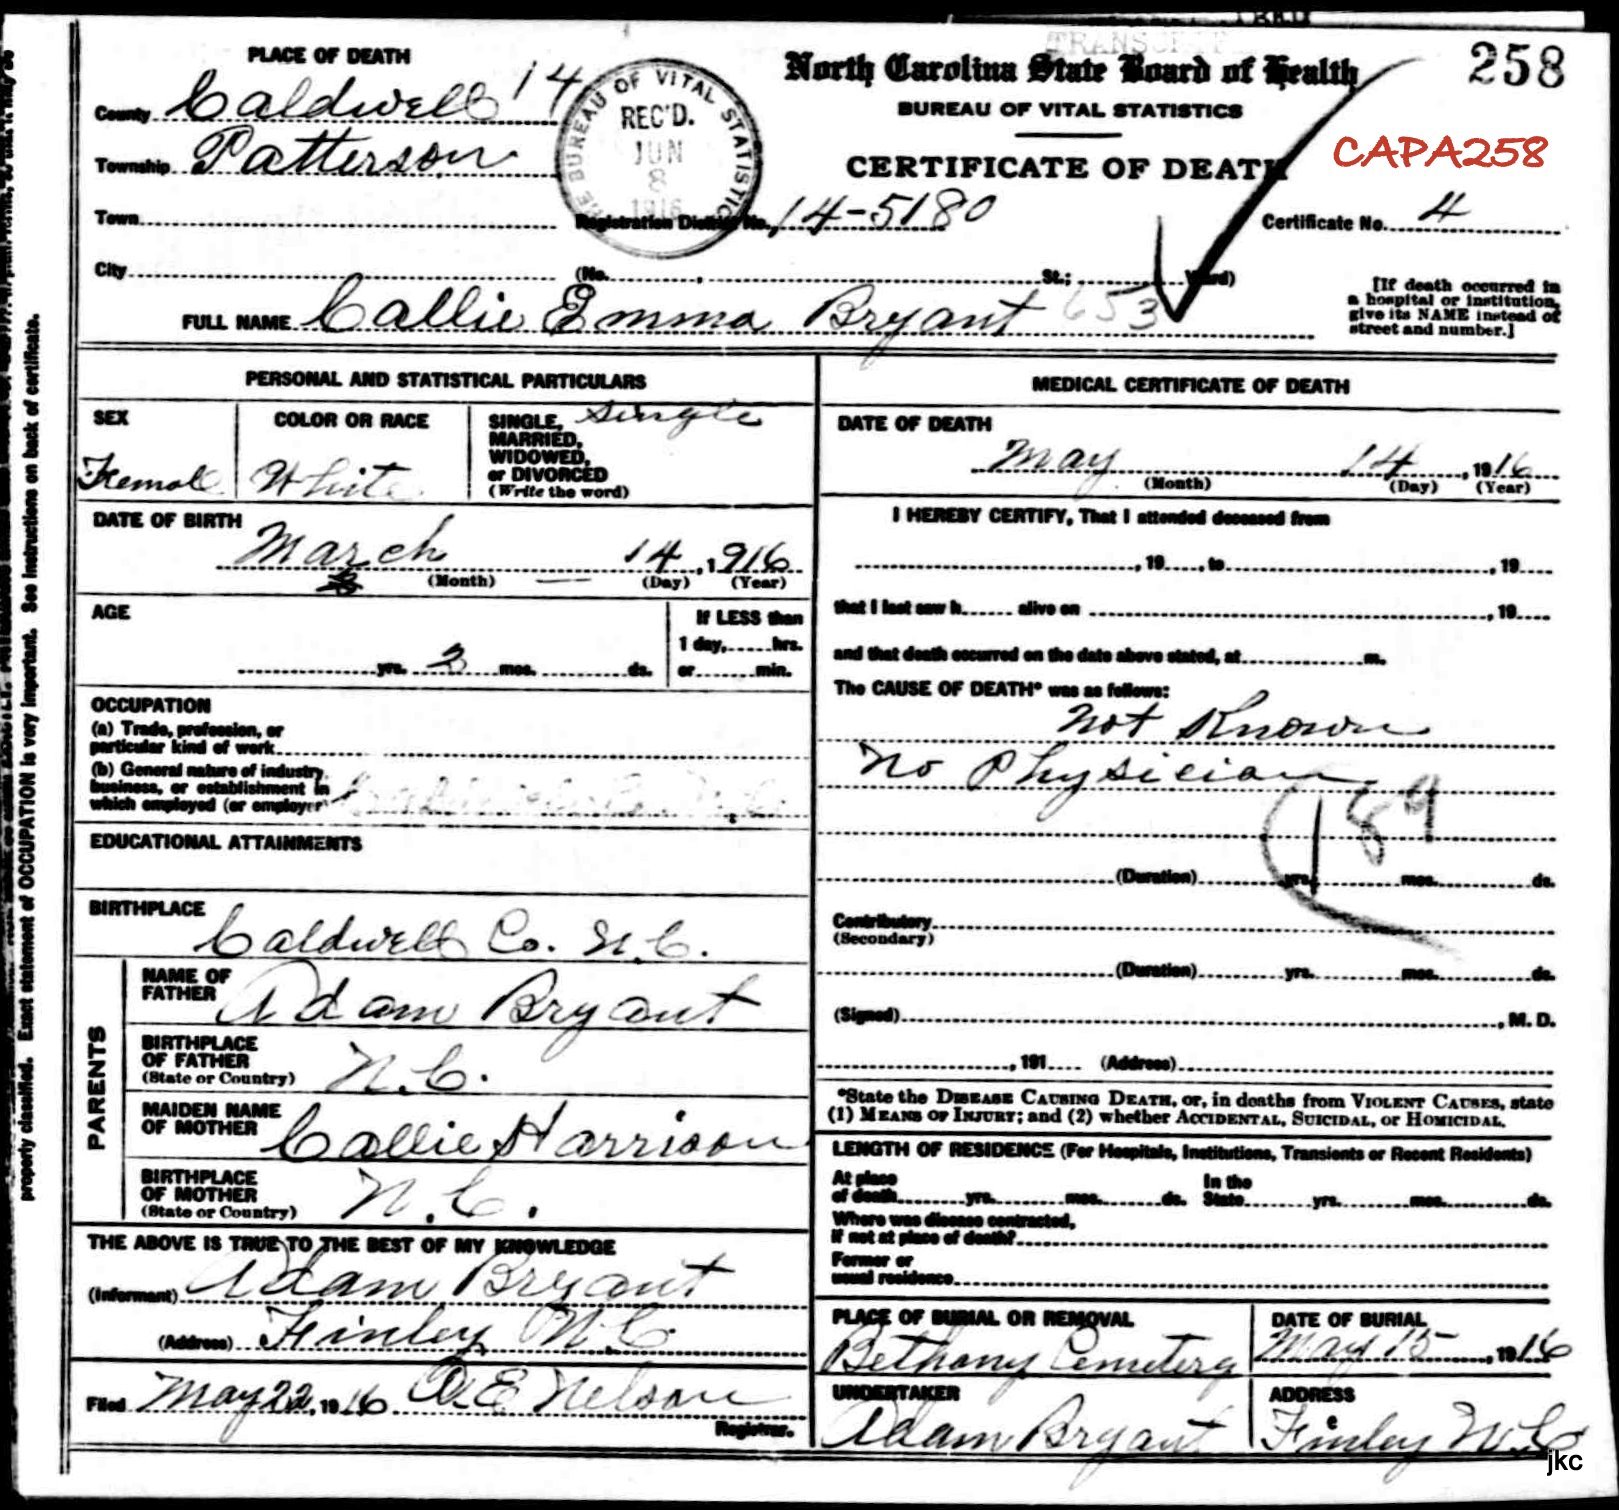 258
PLACE OF DEATH
County Caldwell 14
Township Patterson
Town
City
BUREAU OF VITAL STATISTICS
REC'D.
JUN
8
1916
TRANSCRI
North Carolina State Board of Health
BUREAU OF VITAL STATISTICS
CERTIFICATE OF DEATH
CAPA258
Registration District No. 14-5180
Certificate No. 4
(No. , St.; Ward)
[If death occurred in
a hospital or institution,
give its NAME instead of
street and number.]
FULL NAME Callie Emma Bryant 653
PERSONAL AND STATISTICAL PARTICULARS
SEX
Female
COLOR OR RACE
White
SINGLE, Single
MARRIED,
WIDOWED,
or DIVORCED
(Write the word)
DATE OF BIRTH
March 14, 1916
(Month) (Day) (Year)
AGE
yrs. 2 mos. ds.
If LESS than
1 day, hrs.
or min.
OCCUPATION
(a) Trade, profession, or
particular kind of work
(b) General nature of industry,
business, or establishment in
which employed (or employer)
EDUCATIONAL ATTAINMENTS
BIRTHPLACE
Caldwell Co. N.C.
PARENTS
NAME OF
FATHER Adam Bryant
BIRTHPLACE
OF FATHER
(State or Country) N.C.
MAIDEN NAME
OF MOTHER Callie Harrison
BIRTHPLACE
OF MOTHER
(State or Country) N.C.
THE ABOVE IS TRUE TO THE BEST OF MY KNOWLEDGE
(Informant) Adam Bryant
(Address) Finley N.C.
Filed May 22, 1916 Nelson
Registrar.
MEDICAL CERTIFICATE OF DEATH
DATE OF DEATH
May 14, 1916
(Month) (Day) (Year)
I HEREBY CERTIFY, That I attended deceased from
, 19 , to , 19
that I last saw h alive on , 19
and that death occurred on the date above stated, at m.
The CAUSE OF DEATH* was as follows:
Not Known
No Physician
189
(Duration) yrs. mos. ds.
Contributory
(Secondary)
(Duration) yrs. mos. ds.
(Signed) , M. D.
, 191 (Address)
*State the DISEASE CAUSING DEATH, or, in deaths from VIOLENT CAUSES, state
(1) MEANS OF INJURY; and (2) whether ACCIDENTAL, SUICIDAL, or HOMICIDAL.
LENGTH OF RESIDENCE (For Hospitals, Institutions, Transients or Recent Residents)
At place
of death yrs. mos. ds.
In the
State yrs. mos. ds.
Where was disease contracted,
if not at place of death?
Former or
usual residence
PLACE OF BURIAL OR REMOVAL
Bethany Cemetery
DATE OF BURIAL
May 15, 1916
UNDERTAKER
Adam Bryant
ADDRESS
Finley N.C.
jkc
properly classified. Exact statement of OCCUPATION is very important. See instructions on back of certificate.